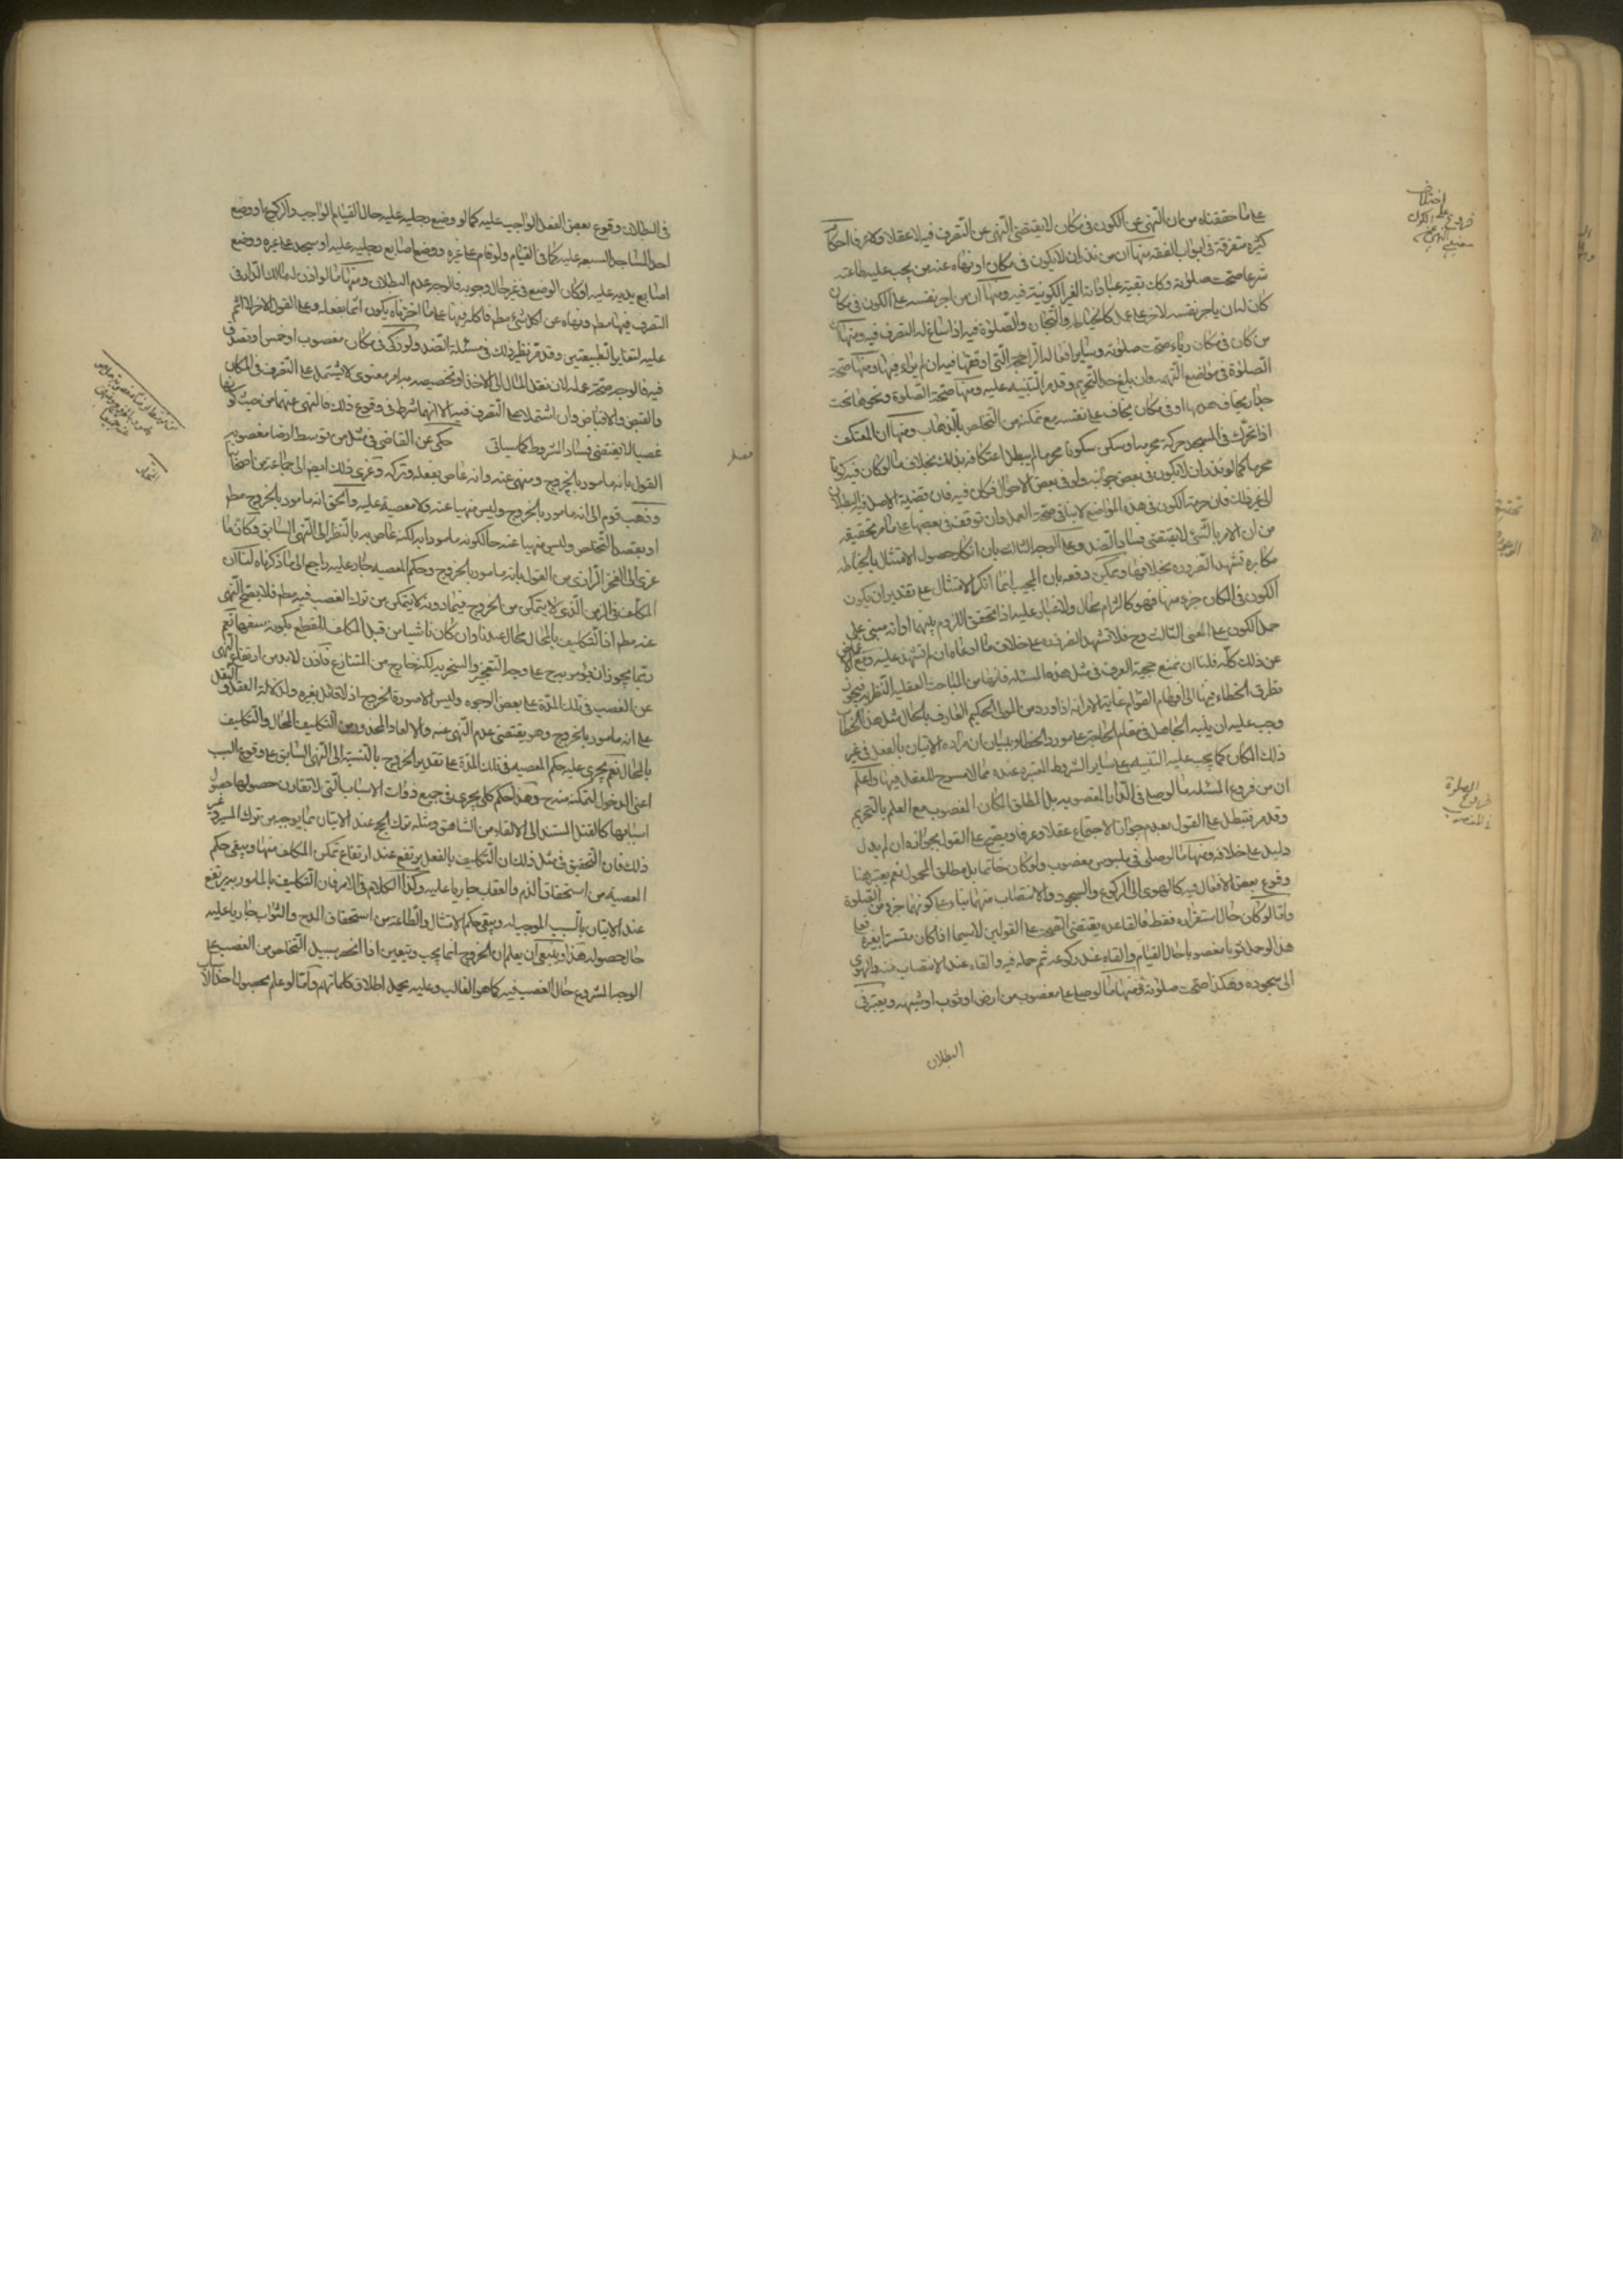 على ما حققناه من ان النهى عن الكون فى مكان لا يقتضى النهى عن التصرف فيه لا عقلا ولا عرفا احكام
كثيرة متفرقة فى ابواب الفقه منها ان من نذر ان لا يكون فى مكان او نهاه عنه من يجب عليه طاعته
شرعا صحت صلوته وكانت بقية عباداته الغير الكونية فيه ومنها ان من اجر نفسه على الكون فى مكان
كان له ان ياجر نفسه لاخر على عمل كالخياطة والتجارة والصلوة فيه اذا ساغ له التصرف فيه ومنها ان
من كان فى مكان رياء صحت صلوته وساير افعاله الراجحة التى اوقعها فيه ان لم يراء فيها ومنها صحة
الصلوة فى مواضع التهمة وان بلغ حد التحريم وقد مر التنبيه عليه ومنها صحة الصلوة ونحوها تحت
جدار يخاف هدمها او فى مكان يخاف على نفسه مع تمكنه من التخلص بالذهاب ومنها ان المعتكف
اذا تحرك فى المسجد حركة محرمة او سكن سكونا محرما لم يبطل اعتكافه بذلك بخلاف ما لو كان فيه كونا
محرما كما لو نذر ان لا يكون فى بعض جوانبه ولو فى بعض الاحوال فكان فيه فان قضية الاصل فيه البطلان
الى غير ذلك فان حرمة الكون فى هذه المواضع لا ينافى صحة العمل وان توقف فى بعضها على ما مر تحقيقه
من ان الامر بالشئ لا يقتضى فساد الضد وعلى الوجه الثالث بان انكار حصول الامتثال بالخياطة
مكابرة تشهد الضرورة بخلافها ويمكن دفعه بان المجيب انما انكر الامتثال على تقدير ان يكون
الكون فى المكان جزء منها فهو كالتزام محال ولا غبار عليه اذا تحقق اللزوم بينهما او انه مبنى على
حمل الكون على المعنى الثالث وح فلا تشهد الضرورة على خلاف ما ادعاه ان لم تشهد عليه ومع الاغماض
عن ذلك كله فلنا ان نمنع حجية العرف فى مثل هذه المسئلة فانها من المباحث العقلية النظرية فيجوز
تطرق الخطاء فيها الى افهام العوام غاية الامر انه اذا ورد من المولى الحكيم العارف بالحال مثل هذا الخطاب
وجب عليه ان ينبه الجاهل فى مقام الحاجة على مورد الخطاء ويبان ان مراده الاتيان بالفعل فى غير
ذلك المكان كما يجب عليه التنبيه على ساير الشروط المعتبرة عنده مما لا مسرح للعقل فيها واعلم
ان من فروع المسئلة ما لو صلى فى الدار المغصوبة بل مطلق المكان المغصوب مع العلم بالتحريم
وقد مر فتبطل على القول بعدم جواز الاجتماع عقلا وعرفا ويصح على القول بجوازه ان لم يدل
دليل على خلافه ومنها ما لو صلى فى ملبوس مغصوب ولو كان خاتما بل مطلق المحمول نعم يعتبر هنا
وقوع بعض الافعال فيه كالهوى الى الركوع والسجود والانتصاب منهما بناء على كونهما جزء من الصلوة
واما لو كان حال استقراره فقط فالقاعدة يقتضى الصحة على القولين لا سيما اذا كان مستترا بغيره فعلى
هذا لو حمل ثوبا مغصوبا حال القيام والقاه عند ركوعه ثم حمله فيه والقاه عند الانتصاب منه والهوى
الى سجوده وهكذا صحت صلوته ومنها ما لو صلى على مغصوب من ارض او ثوب او شبهه ويعتبر فى
البطلان
فروع الصلوة
فى المغصوب
فى البطلان وقوع بعض الفعل الواجب عليه كما لو وضع رجليه عليه حال القيام الواجب والركوع او وضع
احد المساجد السبعة عليه كما فى القيام ولو قام على غيره ووضع اصابع رجليه عليه او سجد على غيره ووضع
اصابع يديه عليه او كان الوضع فى غير حال وجوبه فالوجه عدم البطلان ومنها ما لو اذن له مالك الدار فى
التصرف فيها مطم ونهاه عن اكل شئ مطم فاكله فيها على ما اخترناه يكون اثما بفعله وعلى القول الاخر لا اثم
عليه لتغاير الطبيعتين وقد مر نظير ذلك فى مسئلة الضد ولو زكى فى مكان مغصوب او خمس او تصدق
فيه فالوجه صحة عمله لان نقل المال الى الاخذ او تخصيصه به امر معنوى لا يشتمل على التصرف فى المكان
والقبض والاقباض وان اشتملا على التصرف فيه الا انهما شرط فى وقوع ذلك فالنهى عنهما من حيث كونهما
غصبا لا يقتضى فساد الشروط كما سياتى فصل حكى عن القاضى فى مثل من توسط ارضا مغصوبة
القول بانه مامور بالخروج ومنهى عنه وانه عاص بفعله وتركه وعزى ذلك ايض الى جماعة من اصحابنا
وذهب قوم الى انه مامور بالخروج وليس منهيا عنه ولا معصية عليه والحق انه مامور بالخروج مطم
او بقصد التخلص وليس منهيا عنه حال كونه مامورا به لكنه عاص به بالنظر الى النهى السابق وكان ما
عزى الى الفخر الرازى من القول بانه مامور بالخروج وحكم المعصية جار عليه راجع الى ما ذكرناه لنا ان
المكلف فى الزمن الذى لا يتمكن من الخروج فيما دونه لا يتمكن من ترك الغصب فيه مطم فلا يصح النهى
عنه مطم اذ التكليف بالمحال محال عندنا وان كان ناشيا من قبل المكلف للقطع بكونه سفها نعم
ربما يجوز ان يؤمر به ح على وجه التعجيز والسخرية لكنه خارج من المتنازع فاذن لا بد من ارتفاع النهى
عن الغصب فى تلك المدة على بعض الوجوه وليس الا صورة الخروج اذ لا قائل بغيره ولدلالة العقل والنقل
على انه مامور بالخروج وهو يقتضى عدم النهى عنه والا لعاد المحذور من التكليف المحال والتكليف
بالمحال نعم يجرى عليه حكم المعصية فى تلك المدة على تقدير الخروج بالنسبة الى النهى السابق على وقوع السبب
اعنى الدخول لتمكنه منه ح وهذا حكم كلى يجرى فى جميع ذوات الاسباب التى لا تقارن حصولها حصول
اسبابها كالقتل المستند الى الالقاء من الشاهق ومثله ترك الحج عند الاتيان بما يوجبه من ترك المسير وغير
ذلك فان التحقيق فى مثل ذلك ان التكليف بالفعل يرتفع عند ارتفاع تمكن المكلف منها ويبقى حكم
المعصية من استحقاق الذم والعقاب جاريا عليه وكذا الكلام فى الامر فان التكليف بالمامور به يرتفع
عند الاتيان بالسبب الموجب له ويبقى حكم الامتثال والطاعة من استحقاق المدح والثواب جاريا عليه
حال حصوله هذا وينبغى ان يعلم ان الخروج انما يجب ويتعين اذا انحصر سبيل التخلص من الغصب على
الوجه المشروع حال الغصب فيه كما هو الغالب وعليه يحمل اطلاق كلماتهم واما لو علم بحصول احد الاسباب